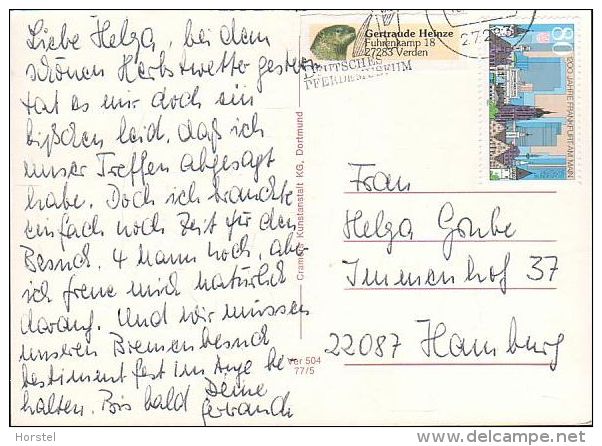 Liebe Helga, bei dem
schönen Herbstwetter gestern
tat es mir doch ein
bißchen leid, daß ich
unser Treffen abgesagt
habe. Doch ich brauchte
einfach noch Zeit für den
Besuch. 4 Mann hoch, aber
ich freue mich natürlich
darauf. Und wir müssen
unseren Bremenbesuch
bestimmt fest im Auge be-
halten. Bis bald Deine
Gertraude
Gertraude Heinze
Fuhrenkamp 18
27283 Verden
DEUTSCHES
PFERDEMUSEUM
27283
80
1200 JAHRE FRANKFURT AM MAIN
Cramers Kunstanstalt KG, Dortmund
Ver 504
77/5
Frau
Helga Grube
Immenhof 37
22087 Hamburg
Horstel
www.delcampe.net